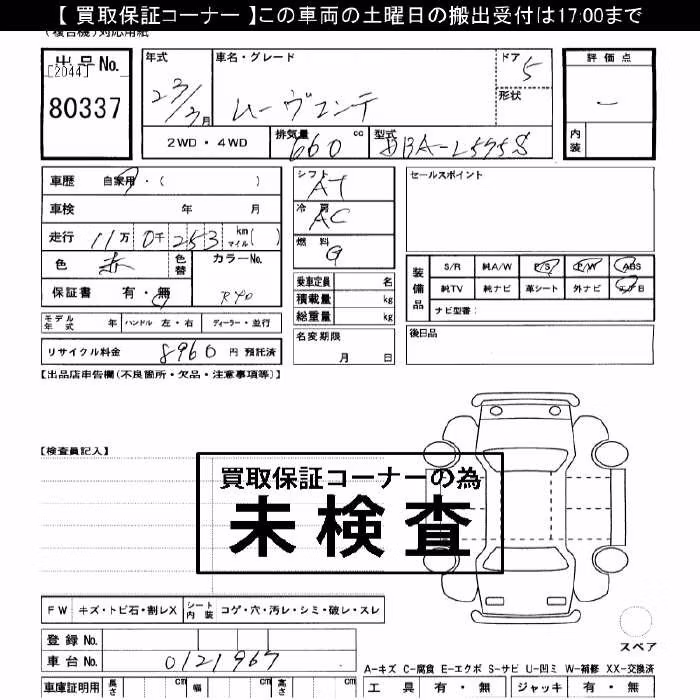 【 買取保証コーナー 】この車両の土曜日の搬出受付は17:00まで
(複合機)対応用紙
出品No.
[2044]
80337
年式
23/3月
車名・グレード
ムーヴコンテ
ドア 5
形状
評価点
－
内装
2WD・4WD
排気量 660 cc
型式 DBA-L575S
車歴 自家用・( )
車検 年 月
走行 11万0千253 km マイル( )
色 赤
色替
カラーNo.
R40
保証書 有・無
シフト AT
冷房 AC
燃料 G
乗車定員 名
積載量 kg
総重量 kg
セールスポイント
装備品
S/R 純A/W P/S P/W ABS
純TV 純ナビ 革シート 外ナビ エアB
ナビ型番:
モデル年式 年 ハンドル 左・右 ディーラー・並行
名変期限
月 日
後日品
リサイクル料金 8960 円 預託済
【出品店申告欄(不良箇所・欠品・注意事項等)】
【検査員記入】
買取保証コーナーの為
未検査
FW キズ・トビ石・割レX シート内装 コゲ・穴・汚レ・シミ・破レ・スレ
登録No.
車台No. 0121967
スペア
A-キズ C-腐食 E-エクボ S-サビ U-凹ミ W-補修 XX-交換済
車庫証明用 長さ cm 幅 cm 高さ cm
工具 有・無 ジャッキ 有・無